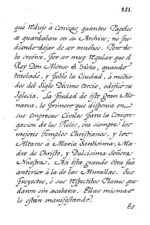 111.
que traxo a Conigar quantos Papeles
se guardaban en su Archivo; no pu-
diendo dejar de ser muchos. Por de
creerse, por ser muy regular que el
Rey Don Alonso el Sabio, quando
trasladó, y pobló la Ciudad, à media-
dos del Siglo Decimo tercio, edificase su
Iglesia. La piedad de este gran Mo-
narca, lo primero que disponia en
sus empresas Civiles para la Congre-
gacion de los fieles, era siempre los
mejores Templos Christianos, y los
Altares à Maria Santisima, Ma-
dre de Christo, y Dulcisima Señora
Nuestra. Asi esta grande Obra fue
anterior à la de las Murallas. Sus
Proyectos, ò sus respectivos Planes que-
daron sin acabarse. Ellas mismas
lo están manifestando.